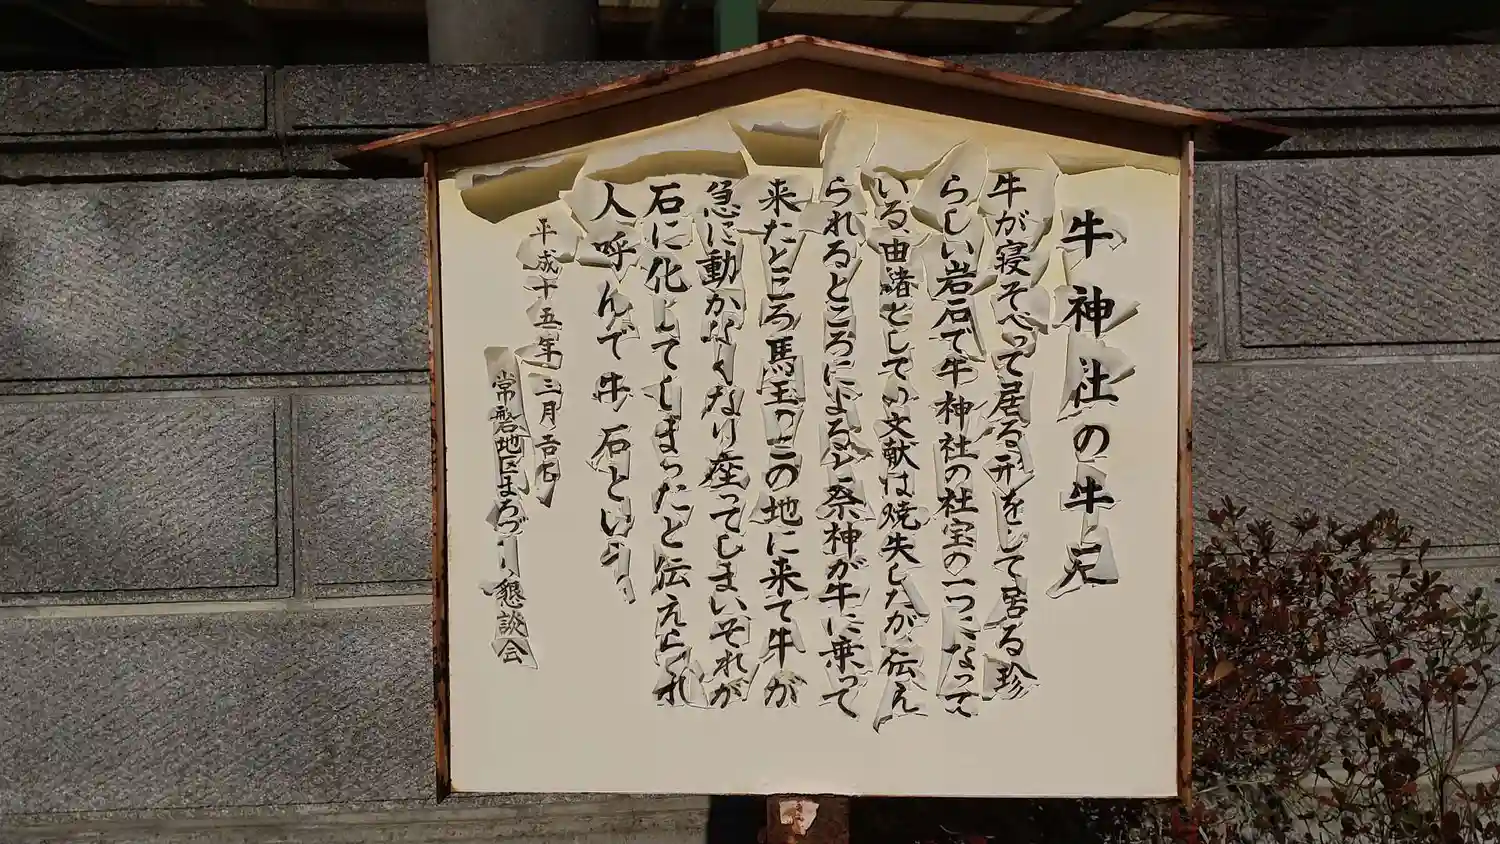 牛神社の牛石
牛が寝そべって居る形をして居る珍
らしい岩石で牛神社の社宝の一つになって
いる由緒としての文献は焼失したが伝え
られるところによると祭神が牛に乗って
来たところ馬玉のこの地に来て牛が
急に動かなくなり座ってしまいそれが
石に化してしまったと伝えられ
人呼んで牛石という
平成十五年三月吉日
常磐地区まちづくり懇談会